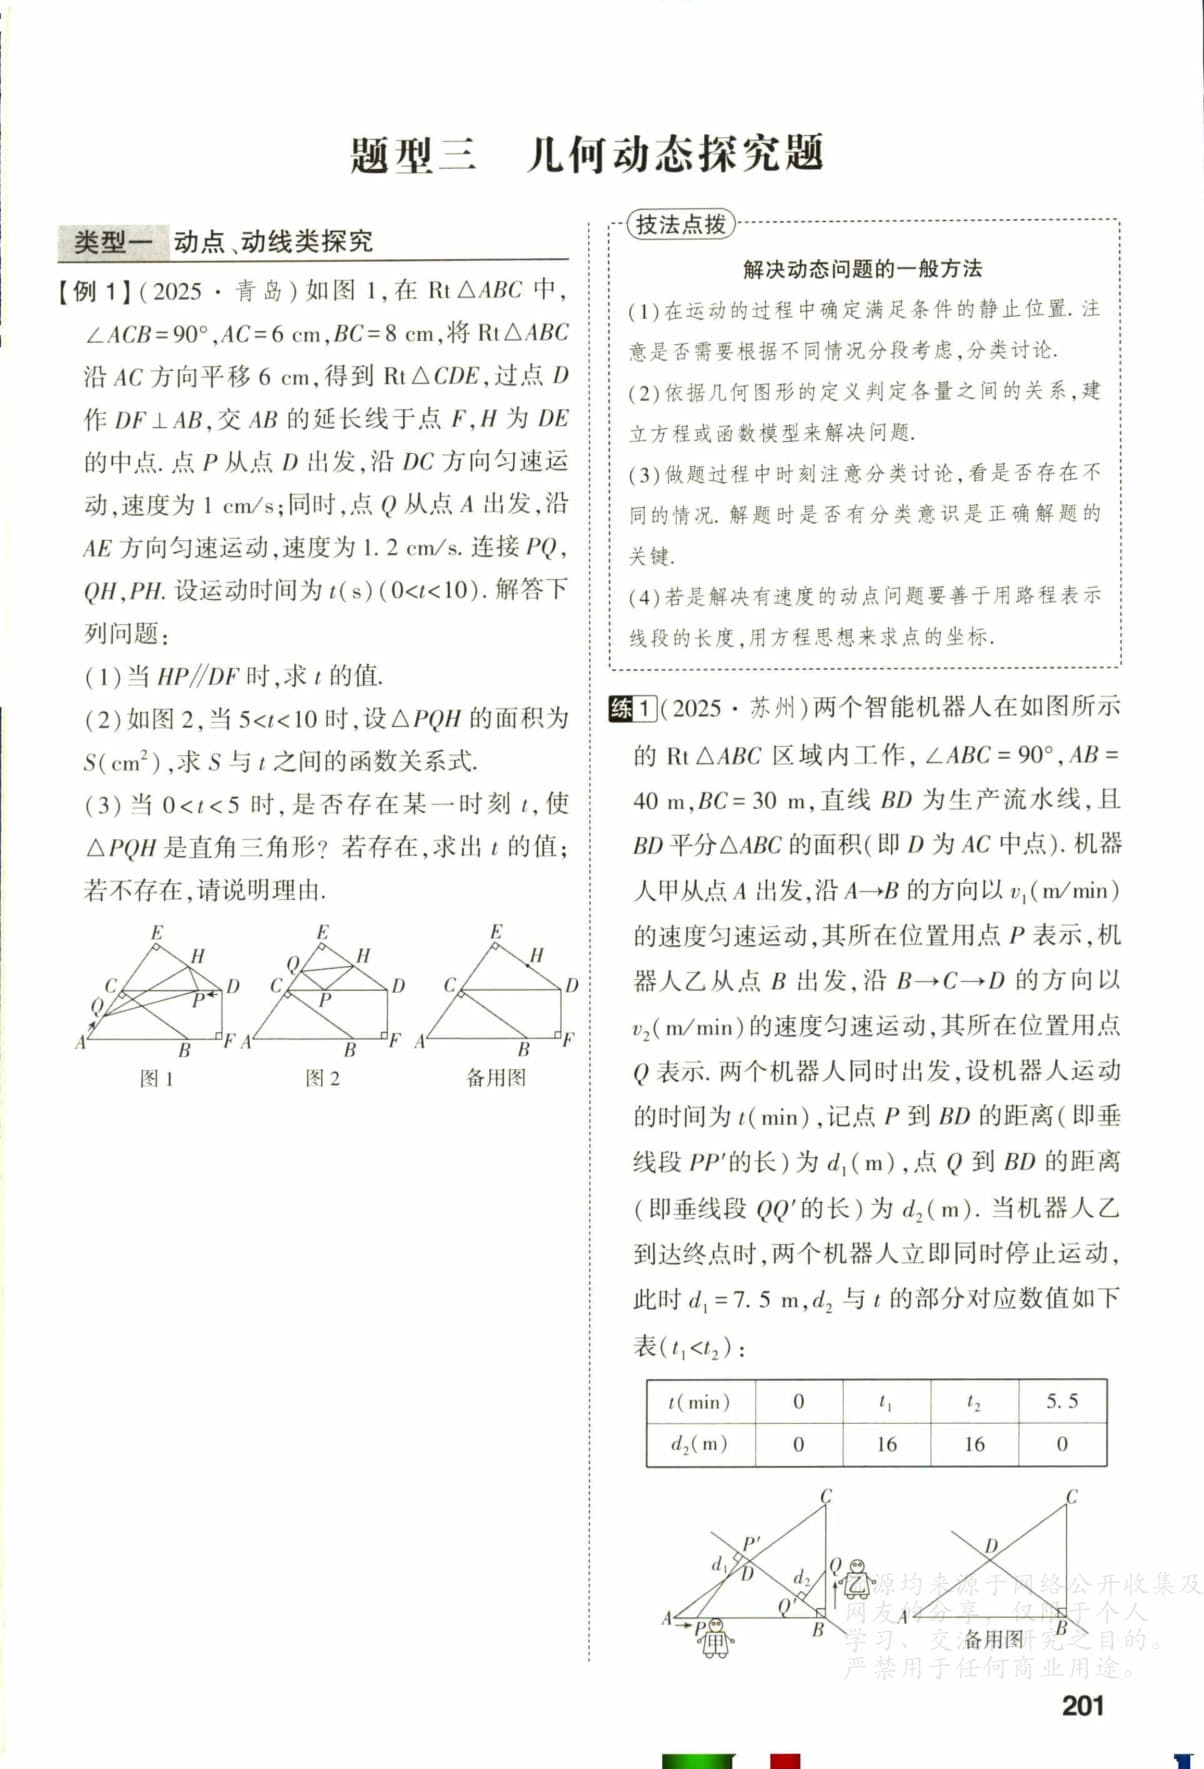 题型三 几何动态探究题
类型一 动点、动线类探究
【例1】(2025·青岛)如图1,在 Rt△ABC 中,
∠ACB=90°,AC=6 cm,BC=8 cm,将 Rt△ABC
沿 AC 方向平移 6 cm,得到 Rt△CDE,过点 D
作 DF⊥AB,交 AB 的延长线于点 F,H 为 DE
的中点. 点 P 从点 D 出发,沿 DC 方向匀速运
动,速度为 1 cm/s;同时,点 Q 从点 A 出发,沿
AE 方向匀速运动,速度为1.2 cm/s. 连接 PQ,
QH,PH. 设运动时间为 t(s)(0<t<10). 解答下
列问题:
(1)当 HP∥DF 时,求 t 的值.
(2)如图2,当 5<t<10 时,设△PQH 的面积为
S(cm²),求 S 与 t 之间的函数关系式.
(3)当 0<t<5 时,是否存在某一时刻 t,使
△PQH 是直角三角形? 若存在,求出 t 的值;
若不存在,请说明理由.
E
H
C
D
Q
P
A
B
F
图1
E
Q
H
C
D
P
A
B
F
图2
E
H
C
D
A
B
F
备用图
技法点拨
解决动态问题的一般方法
(1)在运动的过程中确定满足条件的静止位置. 注
意是否需要根据不同情况分段考虑,分类讨论.
(2)依据几何图形的定义判定各量之间的关系,建
立方程或函数模型来解决问题.
(3)做题过程中时刻注意分类讨论,看是否存在不
同的情况. 解题时是否有分类意识是正确解题的
关键.
(4)若是解决有速度的动点问题要善于用路程表示
线段的长度,用方程思想来求点的坐标.
练1(2025·苏州)两个智能机器人在如图所示
的 Rt△ABC 区域内工作,∠ABC=90°,AB=
40 m,BC=30 m,直线 BD 为生产流水线,且
BD 平分△ABC 的面积(即 D 为 AC 中点). 机器
人甲从点 A 出发,沿 A→B 的方向以 v₁(m/min)
的速度匀速运动,其所在位置用点 P 表示,机
器人乙从点 B 出发,沿 B→C→D 的方向以
v₂(m/min)的速度匀速运动,其所在位置用点
Q 表示. 两个机器人同时出发,设机器人运动
的时间为 t(min),记点 P 到 BD 的距离(即垂
线段 PP′的长)为 d₁(m),点 Q 到 BD 的距离
(即垂线段 QQ′的长)为 d₂(m). 当机器人乙
到达终点时,两个机器人立即同时停止运动,
此时 d₁=7.5 m,d₂ 与 t 的部分对应数值如下
表(t₁<t₂):
t(min) 0 t₁ t₂ 5.5
d₂(m) 0 16 16 0
C
P′
d₁
D
d₂
Q
乙
Q′
A
P
甲
B
C
D
A
B
备用图
源均来源于网络公开收集及
网友的分享,仅限于个人
学习、交流、研究之目的。
严禁用于任何商业用途。
201